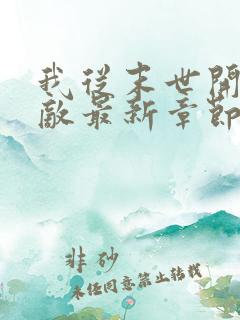 我從末世開
敵最新章節
非砂
未任同意禁止转载